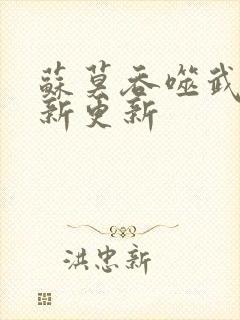 蘇莫吞噬武
新更新
洪忠新